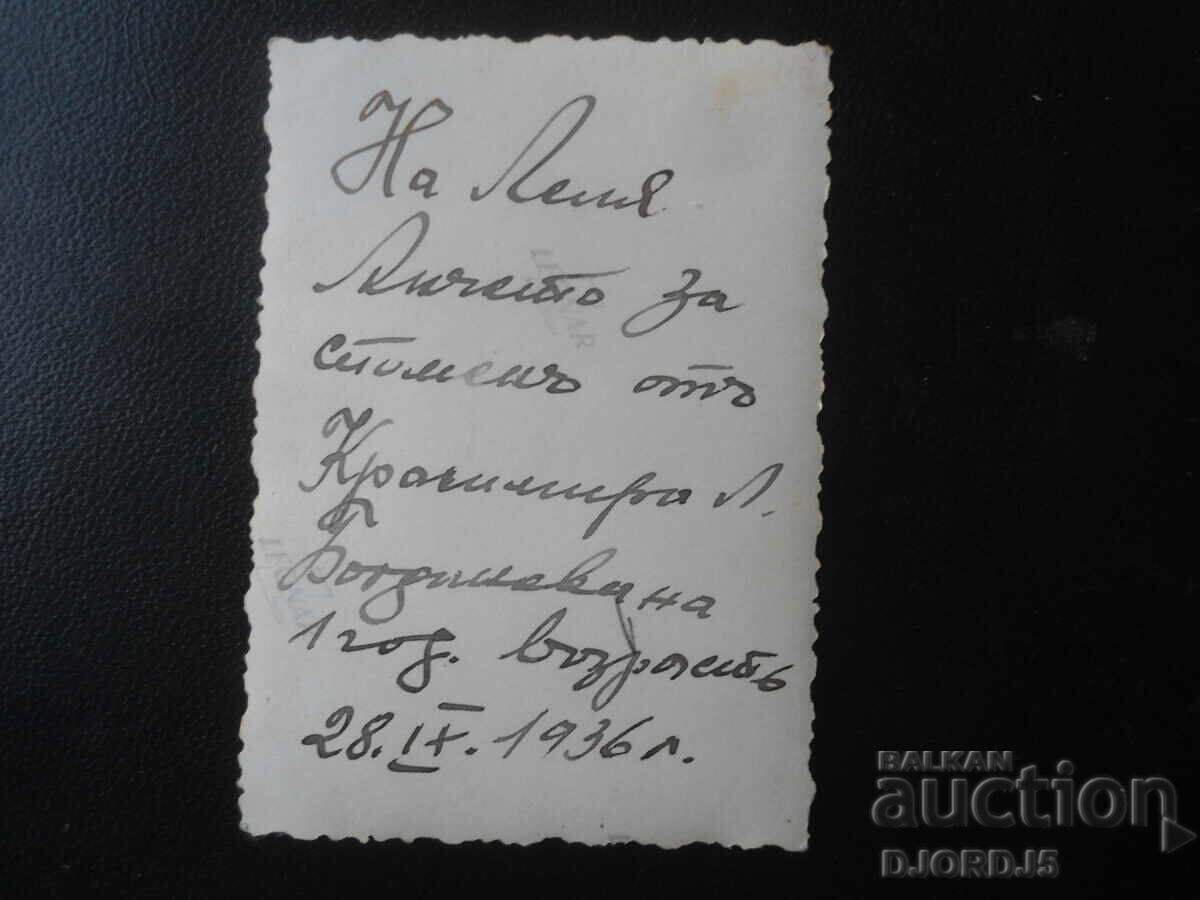 На Леля
Анчето за
споменъ отъ
Красимира Л.
Богданова на
1 год. возрастъ
28. IX. 1936 г.
LEONAR
LEONAR
BALKAN
auction
DJORDJ5